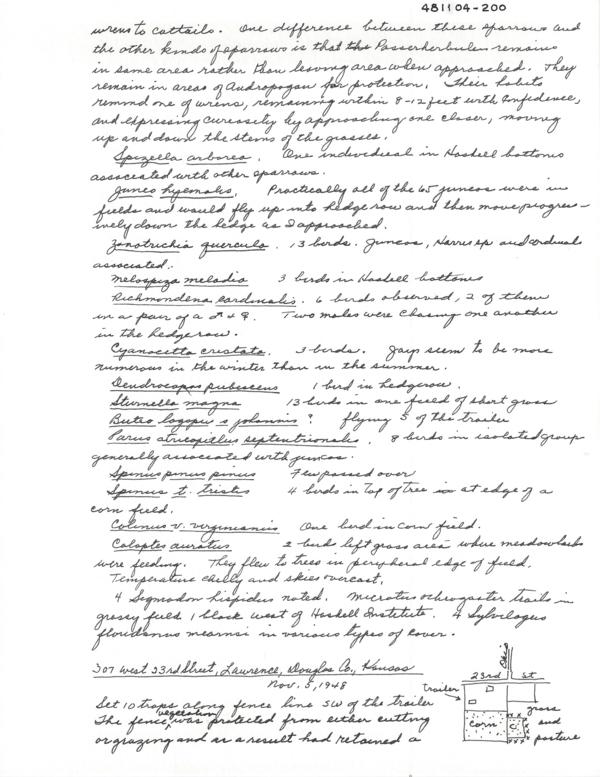 481104-200
wrens to cattails. One difference between these sparrows and
the other kinds of sparrows is that the Passerherbulus remains
in same area rather than leaving area when approached. They
remain in areas of Andropogon for protection. Their habits
remind one of wrens, remaining within 8-12 feet with confidence,
and expressing curiosity by approaching one closer, moving
up and down the stems of the grasses.
Spizella arborea. One individual in Haskell bottoms
associated with other sparrows.
Junco hyemalis. Practically all of the 65 juncos were in
fields and would fly up into hedge row and then move progres-
sively down the hedge as I approached.
Zonotrichia querula. 13 birds. Juncos, Harris sp and cardinals
associated.
Melospiza melodia 3 birds in Haskell bottoms
Richmondena cardinalis. 6 birds observed, 2 of them
in a pair of a ♂ & ♀. Two males were chasing one another
in the hedgerow.
Cyanocitta cristata. 3 birds. Jays seem to be more
numerous in the winter than in the summer.
Dendrocopos pubescens 1 bird in hedgerow.
Sturnella magna 13 birds in one field of short grass
Buteo lagopus s johannis? flying S of the trailer
Parus atricapillus septentrionalis. 8 birds in isolated group
generally associated with juncos.
Spinus pinus pinus Few passed over
Spinus t. tristis 4 birds in top of tree at edge of a
corn field.
Colinus v. virginianus One bird in corn field.
Colaptes auratus 2 birds left grass area where meadowlarks
were feeding. They flew to trees in peripheral edge of field.
Temperature chilly and skies overcast.
4 Sigmodon hispidus noted. Microtus ochrogaster trails in
grassy field 1 block west of Haskell Institute. 4 Sylvilagus
floridanus mearnsi in various types of cover.
307 West 23rd Street, Lawrence, Douglas Co., Kansas
Nov. 5, 1948
Set 10 traps along fence line SW of the trailer
The fence vegetation was protected from either cutting
or grazing and as a result had retained a
Ohio
23rd St
trailer
grass
corn
C.
and
pasture